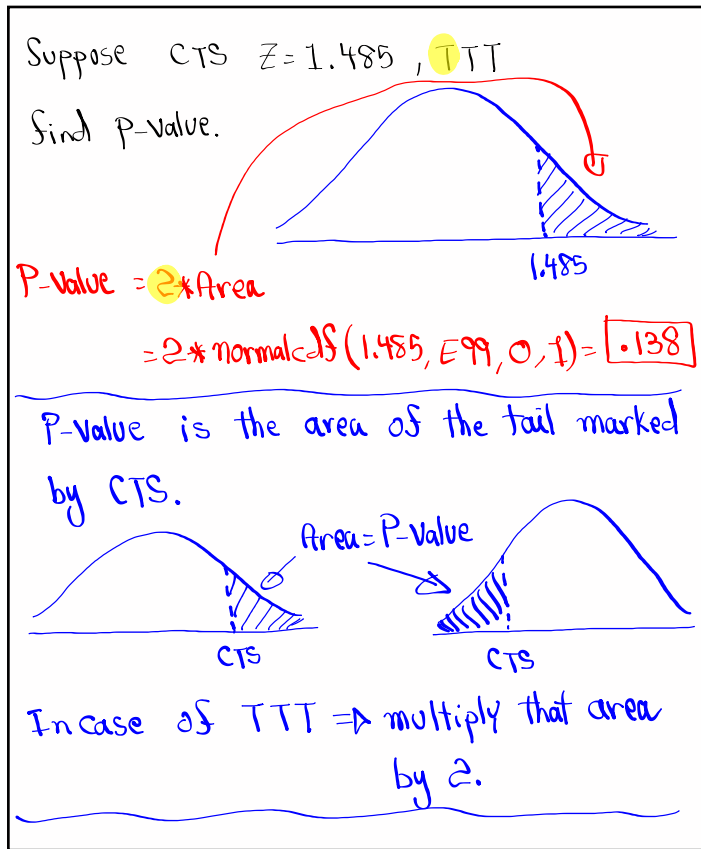 Suppose CTS Z=1.485 , TTT
find P-Value.
1.485
P-Value = 2*Area
=2*normalcdf(1.485, E99, 0, 1)= .138
P-Value is the area of the tail marked
by CTS.
Area=P-Value
CTS
CTS
In case of TTT ⇒ multiply that area
by 2.